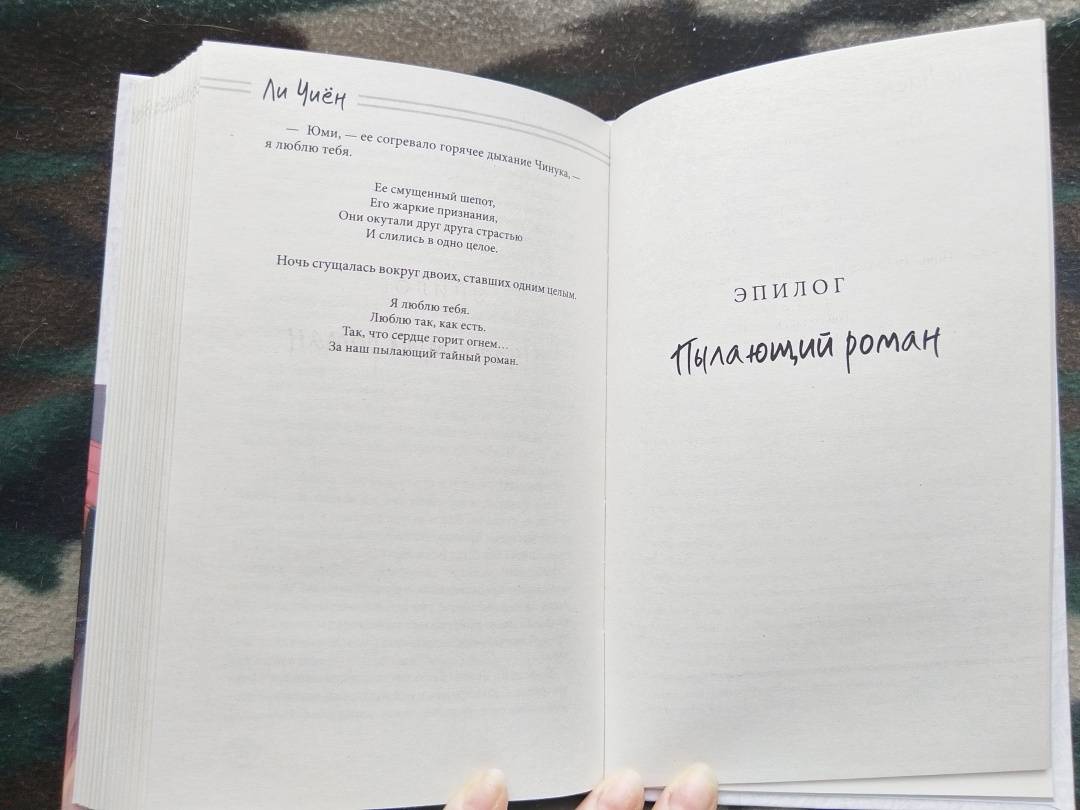 Ли Чиён
— Юми, — ее согревало горячее дыхание Чинука, —
я люблю тебя.
Ее смущенный шепот,
Его жаркие признания,
Они окутали друг друга страстью
И слились в одно целое.
Ночь сгущалась вокруг двоих, ставших одним целым.
Я люблю тебя.
Люблю так, как есть.
Так, что сердце горит огнем…
За наш пылающий тайный роман.
ЭПИЛОГ
Пылающий роман